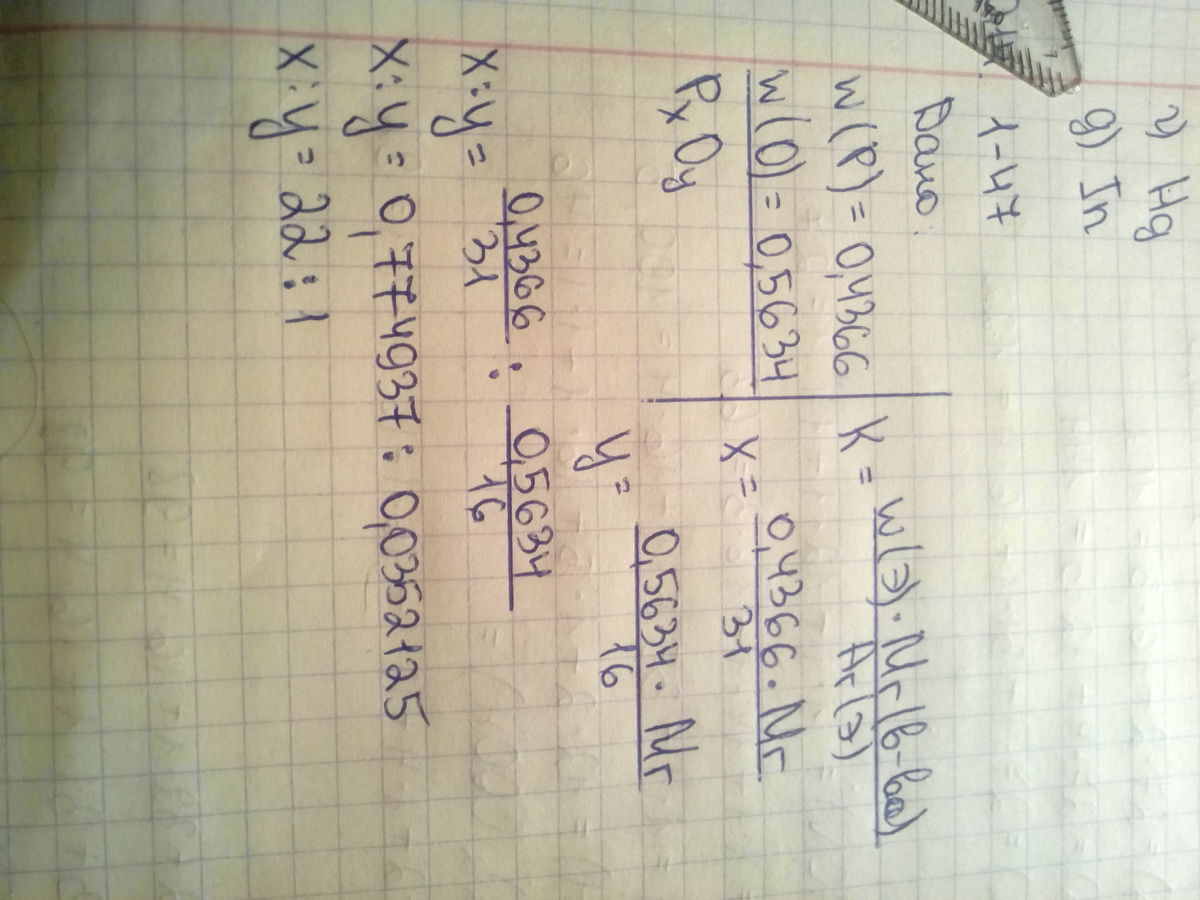 г) Hg
д) In
1-47
Дано:
w(P) = 0,4366
w(O) = 0,5634
PxOy
K = w(Э)·Mr(в-ва)
Ar(Э)
x = 0,4366·Mr
31
y = 0,5634·Mr
16
x:y = 0,4366 : 0,5634
31 16
x:y = 0,774937 : 0,0352125
x:y = 22 : 1